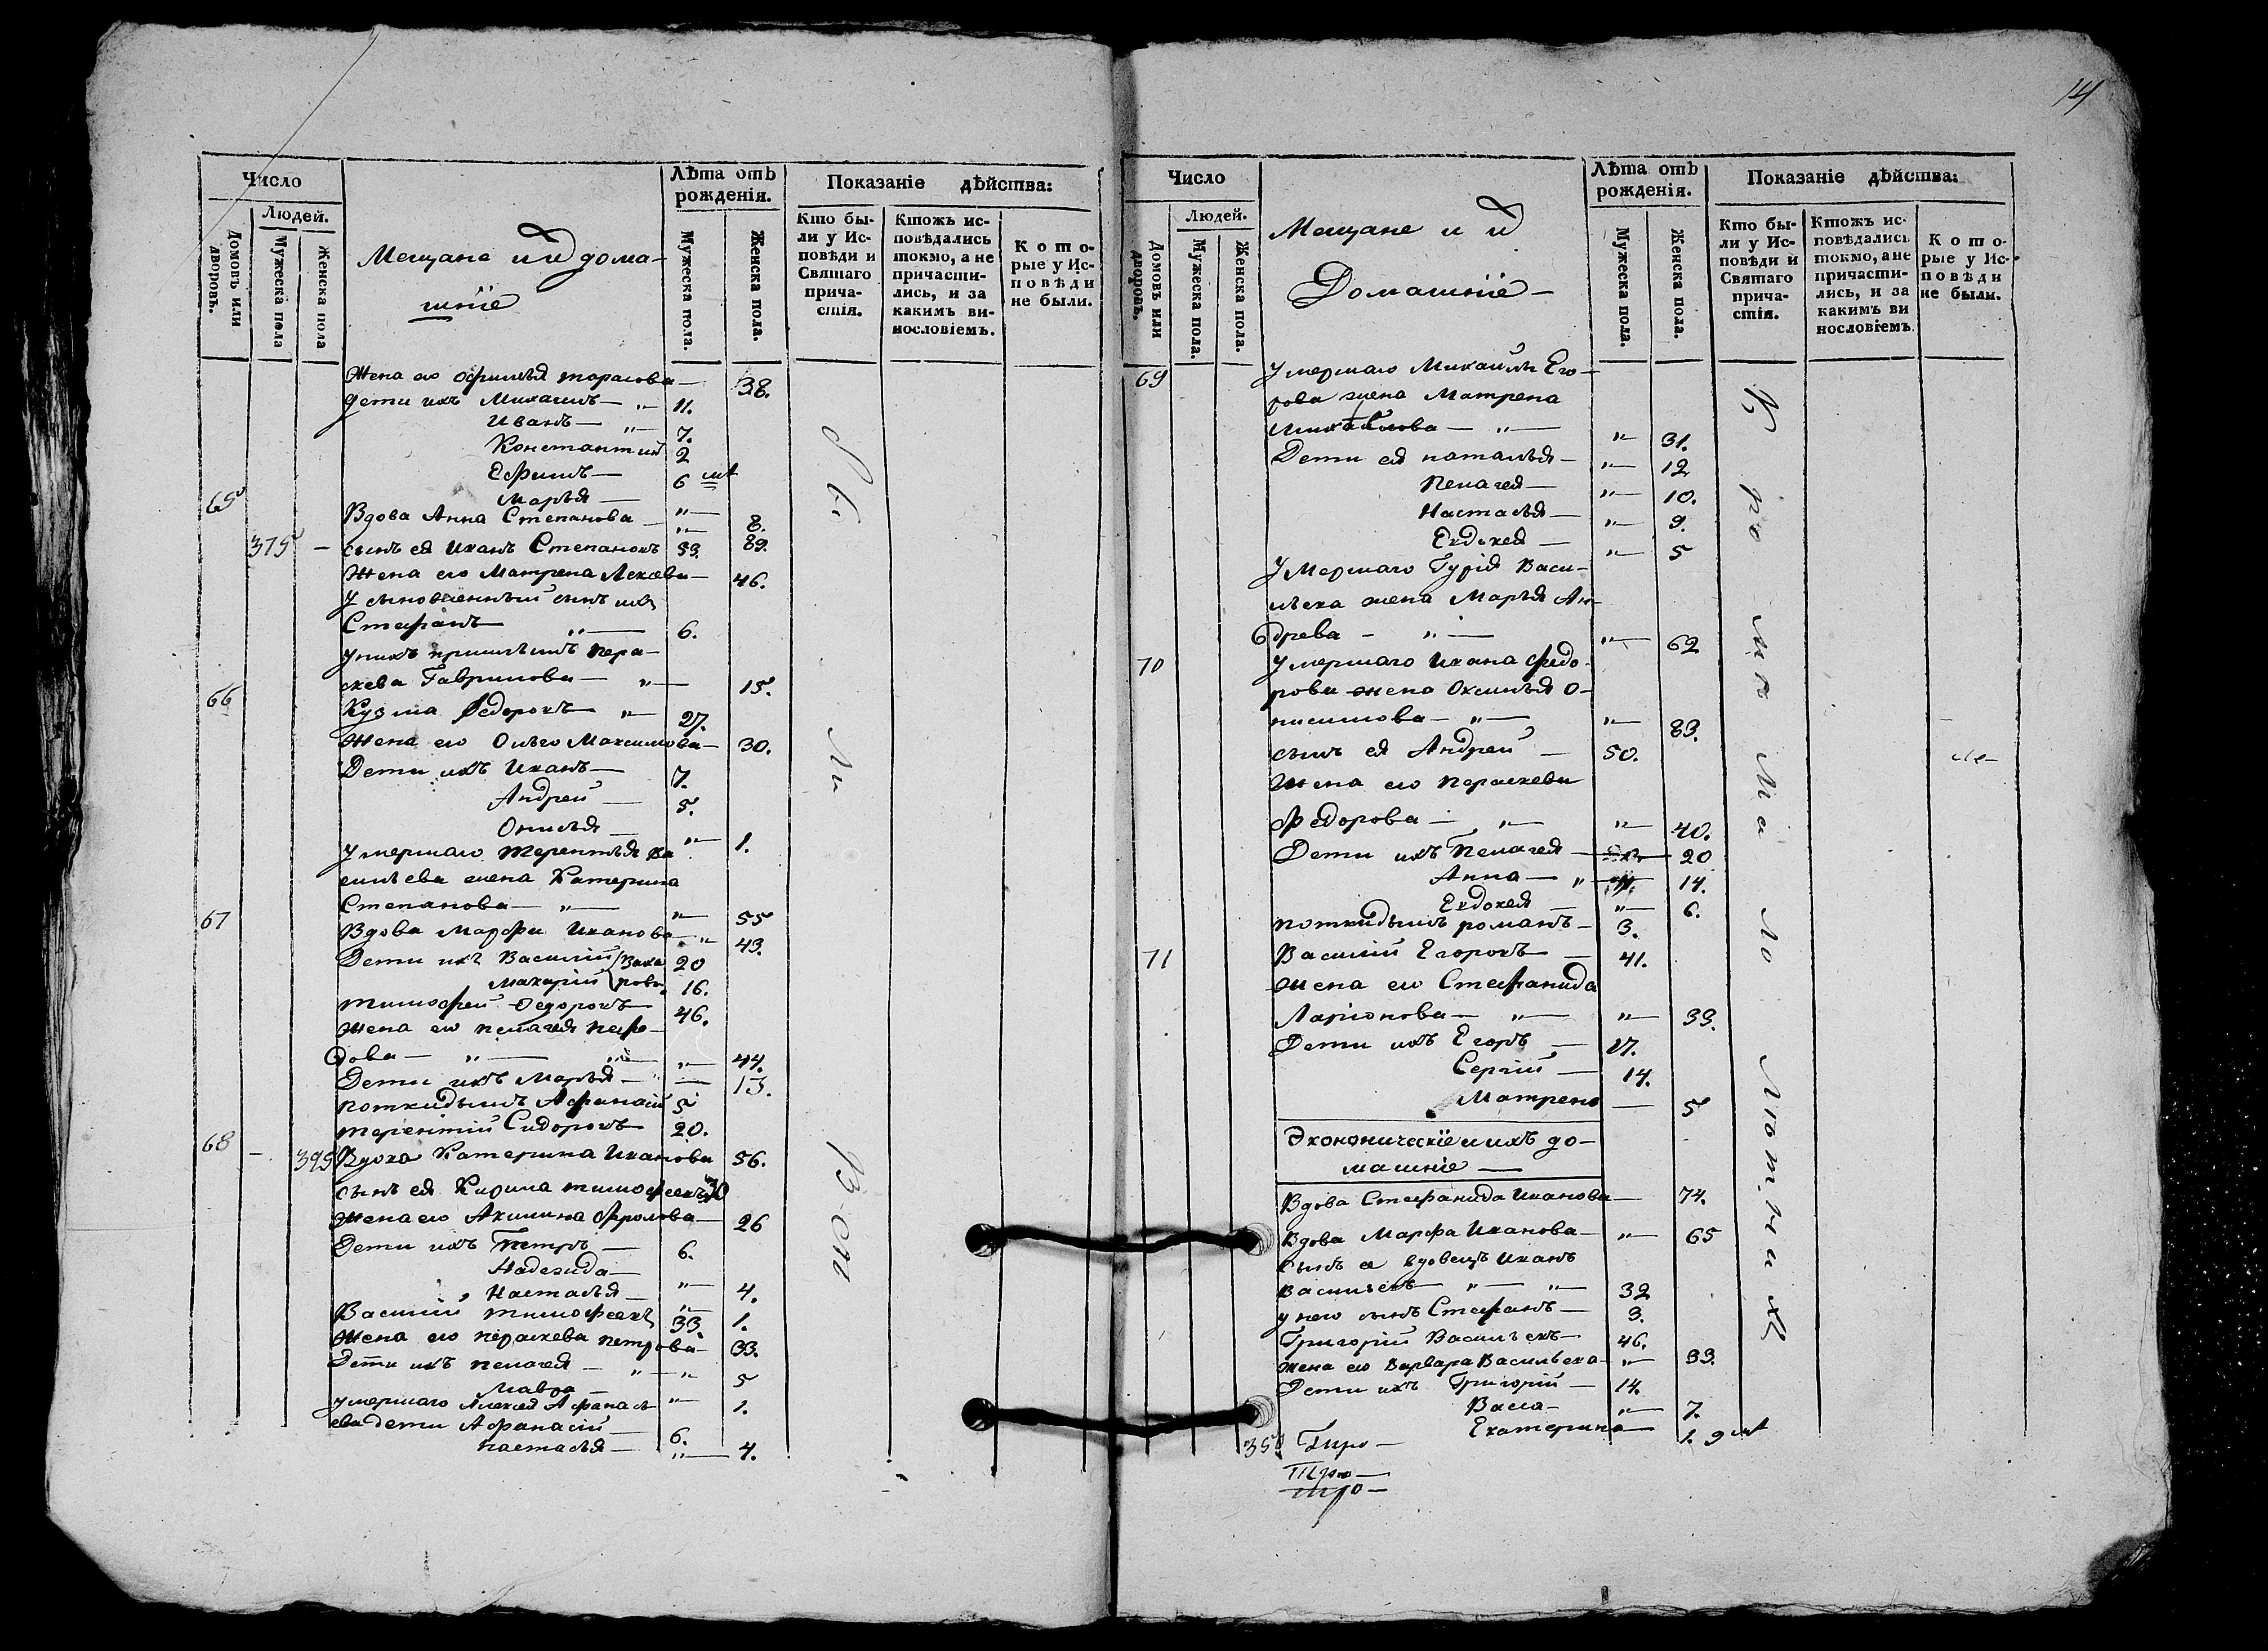 14
Число
Людей.
Домовъ или дворовъ.
Мужеска пола
Женска пола
Мещане и и дома-
шніе
Лѣта отъ рожденія.
Мужеска пола.
Женска пола.
Показаніе дѣйства:
Кто бы-
ли у Ис-
повѣди и
Святаго
прича-
стія.
Ктожъ ис-
повѣдались
токмо, а не
причасти-
лись, и за
какимъ ви-
нословіемъ.
Кото-
рые у Ис-
повѣди
не были.
Жена его Офимья тарасова — 38.
Дети ихъ Михаилъ — „ — 11.
Иванъ — „ — 7.
Константий 2
Ефимъ — 6 мѣ
Марья — „ — 8.
65 Вдова Анна Степанова — „ — 89.
375 — сынъ ея Иванъ Степановъ 59.
Жена его Матрена Лексева — 46.
Усыновленный сынъ ихъ
Стефанъ „ — 6.
у нихъ приимышъ пера-
скева Гаврилова — „ — 15.
66 Кузма Федоровъ „ — 27.
Жена его Ольга Максимова — 30.
Дети ихъ Иванъ — 7.
Андрей — 5.
Онисья — „ — 1.
умершаго Терентья ва
сильева жена Катерина
Степанова — „ — „ — 55
67 Вдова Марфа Иванова — „ 43.
Дети ихъ Василий 20
Макарий 16.
Тимофей Федоровъ 46.
Жена его пелагея
дова — „ — „ — „ — 44.
Дети ихъ Марья — — 13.
поткидышъ Афанасий 5
терентий Сидоровъ 20.
68 — 395 Вдова Катерина Иванова 56.
сынъ ея Кирила тимофеевъ 30
Жена его Акилина Фролова — 26
Дети ихъ Петръ — 6.
Надежда — „ — 4.
Настасья — „ — 1.
Василий тимофеевъ 33.
Жена его пераскева петрова — 33.
Дети ихъ пелагея — „ — „ 5
Мавра — „ — 1.
умершаго Алексея Афанась
ева дети Афанасий — 6.
настасья — „ — 4.
Число
Людей.
Домовъ или дворовъ.
Мужеска пола.
Женска пола.
Мещане и и
Домашніе —
Лѣта отъ рожденія.
Мужеска пола.
Женска пола.
Показаніе дѣйства:
Кто бы-
ли у Ис-
повѣди и
Святаго
прича-
стія.
Ктожъ ис-
повѣдались
токмо, а не
причасти-
лись, и за
какимъ ви
нословіемъ.
Кото-
рые у Ис-
повѣди
не были.
69 Умершаго Михаилы Его-
рова жена Матрена
Михайлова — „ — „ — 31.
Дети ея наталья — „ — 12
Пелагея — „ — 10.
Настасья — „ — 9.
Евдокея — „ — 5
Умершаго Гурія Васи-
льева жена Марья Ан-
древа — „ — „ — 62
70 Умершаго Ивана Федо-
рова жена Оксинья О-
нисимова — „ — „ — 89.
сынъ ея Андрей — 50.
Жена его пераскева
Федорова — „ — „ — 40.
Дети ихъ Пелагея — 20
Анна — „ — 14.
Евдокея — „ — 6.
поткидышъ романъ — 3.
71 Василий Егоровъ — 41.
Жена его Стефанида
Ларіонова — „ — „ — 39.
Дети ихъ Егоръ — 17.
Сергій — 14.
Матрена — 5
Экономическіе и ихъ до-
машніе —
Вдова Стефанида Иванова — 74.
Вдова Марфа Иванова — „ — 65
сынъ ея вдовецъ Иванъ
васильевъ „ — „ — 32
у него сынъ Стефанъ — 3.
Григорій Васильевъ — 46.
Жена его Варвара Васильева — „ — 39.
Дети ихъ Григорій — 14.
Васса — „ — 7.
Екатерина — 1. 9 мѣ